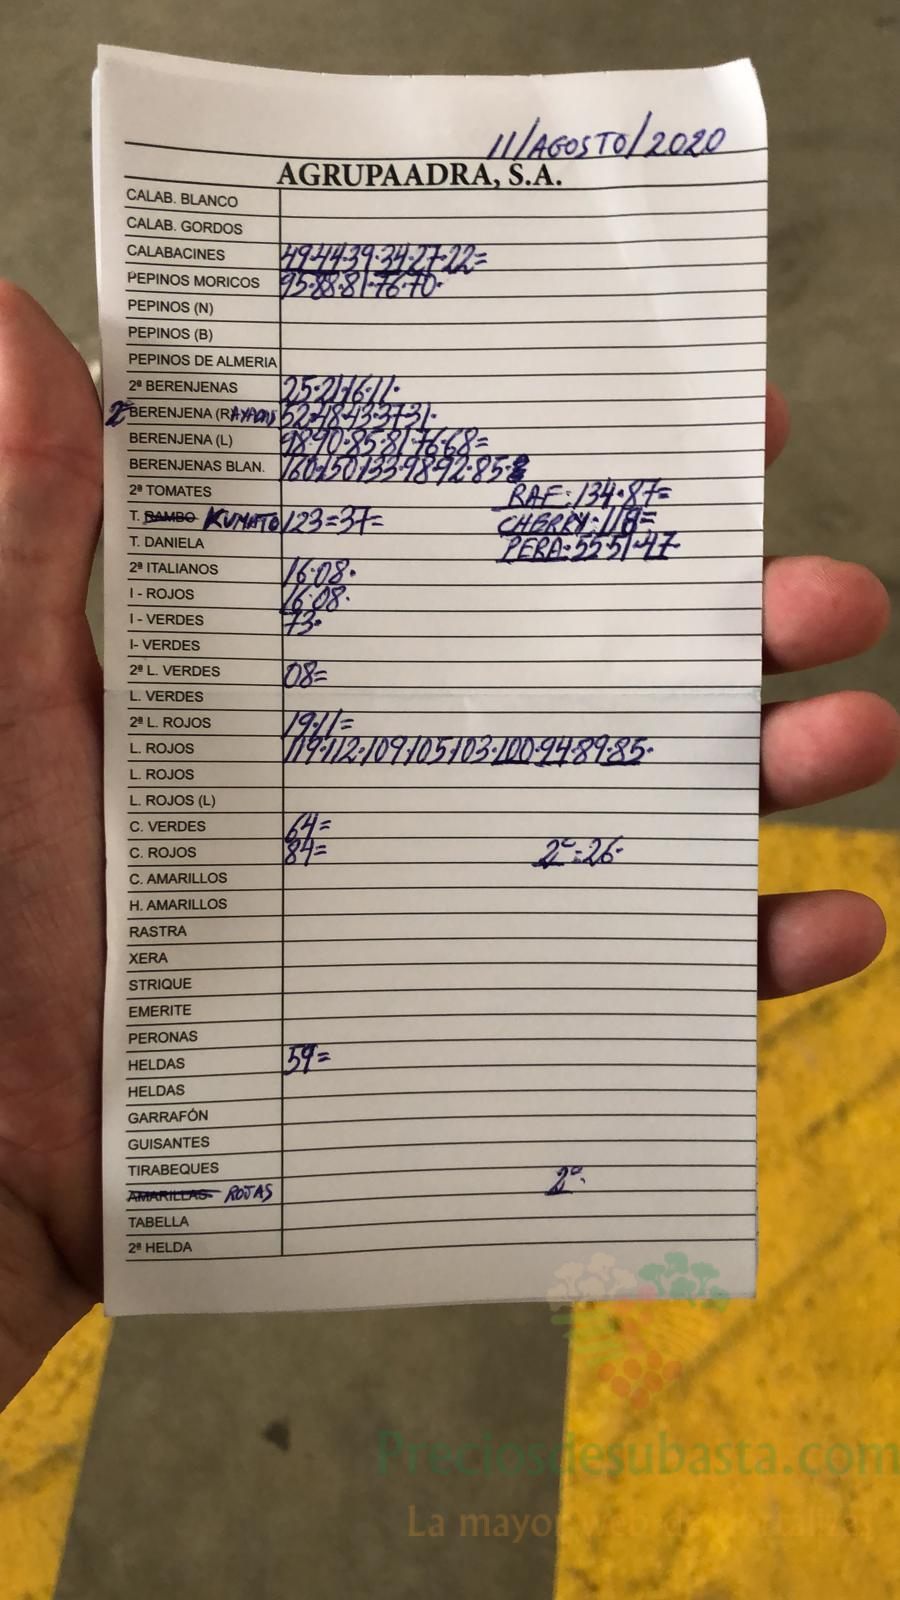 11/AGOSTO/2020
AGRUPAADRA, S.A.
CALAB. BLANCO
CALAB. GORDOS
CALABACINES 49·44·39·34·27·22=
PEPINOS MORICOS 95·88·81·76·70·
PEPINOS (N)
PEPINOS (B)
PEPINOS DE ALMERIA
2ª BERENJENAS 25·21·16·11·
BERENJENA (RAYADAS 52·48·43·37·31·
BERENJENA (L) 98·90·85·81·76·68=
BERENJENAS BLAN. 160·150·133·98·92·85·
2ª TOMATES RAF: 134·87=
T. RAMBO KUMATO 123=37= CHERRY: 119=
T. DANIELA PERA: 55·51·47·
2ª ITALIANOS 16·08·
I - ROJOS 16·08·
I - VERDES 73·
I- VERDES
2ª L. VERDES 08=
L. VERDES
2ª L. ROJOS 19·11=
L. ROJOS 119·112·109·105·103·100·94·89·85·
L. ROJOS
L. ROJOS (L)
C. VERDES 64=
C. ROJOS 84= 2ª=26·
C. AMARILLOS
H. AMARILLOS
RASTRA
XERA
STRIQUE
EMERITE
PERONAS
HELDAS 59=
HELDAS
GARRAFÓN
GUISANTES
TIRABEQUES
AMARILLAS ROJAS 2ª·
TABELLA
2ª HELDA
Preciosdesubasta.com
La mayor web de